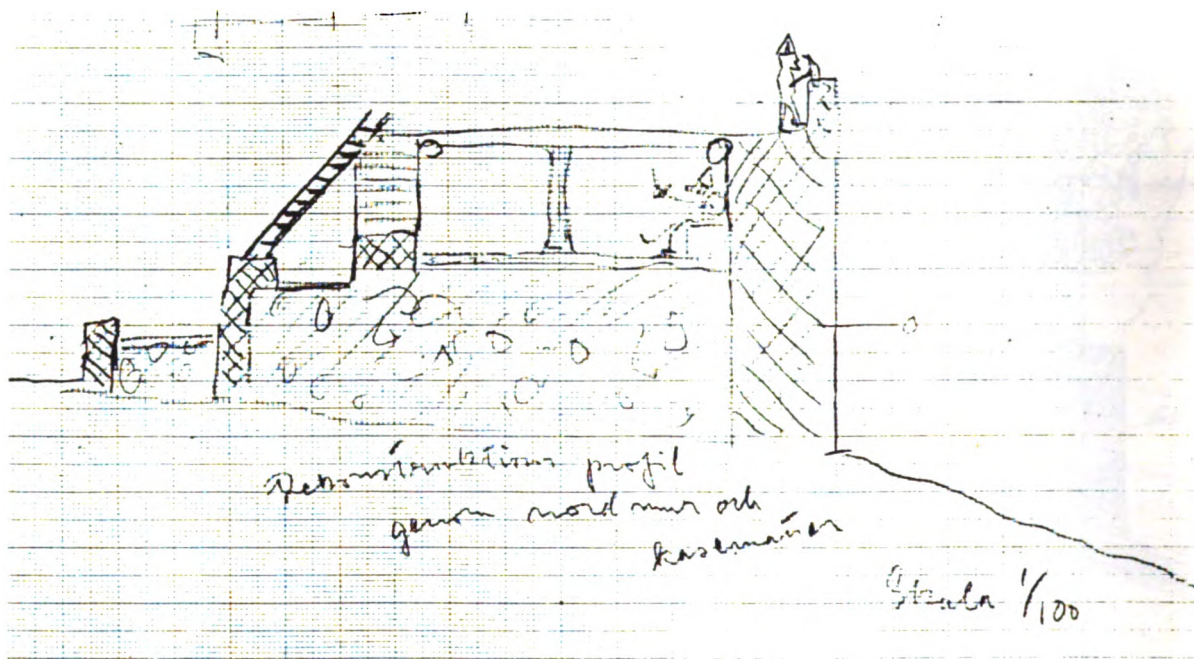 Rekonstruktions profil
genom nordmur och
kasematter
Skala 1/100